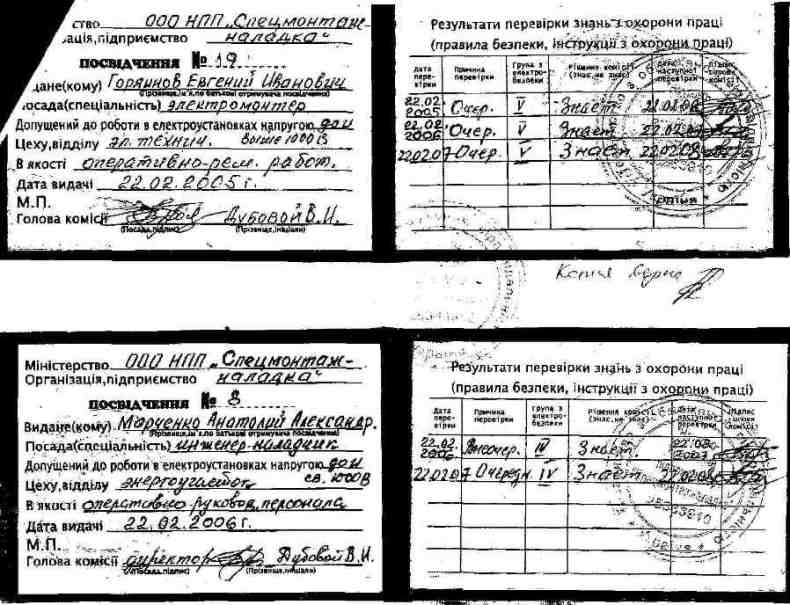 ство ООО НПП „Спецмонтаж-
ація,підприємство наладка"
ПОСВІДЧЕННЯ № 19
дане(кому) Горяинов Евгений Иванович
(Прізвище,ім'я,по батькові отримувача посвідчення)
осада(спеціальність) электромонтер
Допущений до роботи в електроустановках напругою до и
выше 1000 В
Цеху,відділу эл. технич.
В якості оперативно-рем. работ.
Дата видачі 22.02.2005 г.
М.П.
Голова комісії Дубовой В.И.
(Посада,підпис) (Прізвище,ініціали)
Результати перевірки знань з охорони праці
(правила безпеки, інструкції з охорони праці)
Дата пере-вірки Причина перевірки Група з електро-безпеки Рішення комісії (знає,не знає) Дата наступної перевірки Підпис голови комісії
22.02.2005 Очер. V Знает 22.02.06
22.02.2006 Очер. V Знает 22.02.07
22.02.07 Очер. V Знает 22.02.08
Копия верна
Міністерство ООО НПП „Спецмонтаж-
Організація,підприємство наладка"
ПОСВІДЧЕННЯ № 8
Видане(кому) Марченко Анатолий Александр.
(Прізвище,ім'я,по батькові отримувача посвідчення)
Посада(спеціальність) инженер-наладчик
Допущений до роботи в електроустановках напругою до и
св. 1000В
Цеху,відділу
В якості оперативно руковод. персонала
Дата видачі 22.02.2006 г.
М.П.
Голова комісії директор Дубовой В.И.
(Посада,підпис) (Прізвище,ініціали)
Результати перевірки знань з охорони праці
(правила безпеки, інструкції з охорони праці)
Дата пере-вірки Причина перевірки Група з електро-безпеки Рішення комісії (знає,не знає) Дата наступної перевірки Підпис голови комісії
22.02.2006 Внеочер. IV Знает 22.02.2007
22.02.07 Очередн. IV Знает 22.02.08